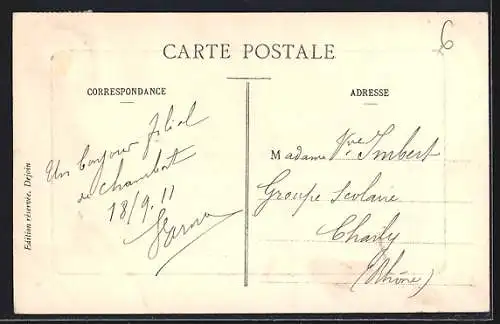 CARTE POSTALE
6
CORRESPONDANCE
Un bonjour filial
de Chambost
18/9.11
ADRESSE
Madame Vve Imbert
Groupe Scolaire
Charly
(Rhône)
Edition réservée. Dejoin